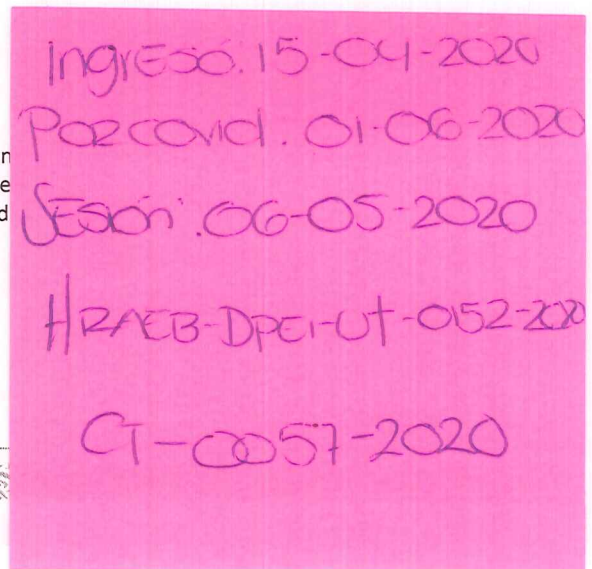 Ingresó. 15-04-2020
Pozcovid. 01-06-2020
n
e
d
Sesión. 06-05-2020
HRAEB-DPEI-UT-0152-2020
CT-0057-2020